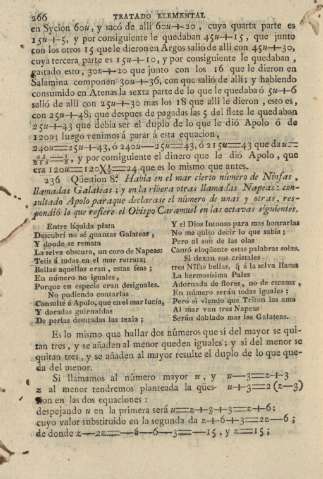 266 TRATADO ELEMENTAL
en Sycion 60u, y sacó de allí 60u+20, cuya quarta parte es
15u+5, y por consiguiente le quedaban 45u+15, que junto
con los otros 15 que le dieron en Argos salió de allí con 45u+30,
cuya tercera parte es 15u+10, y por consiguiente le quedaban,
gastado esto, 30u+20 que junto con los 16 que le dieron en
Salamina componen 30u+36, con que salió de allí; y habiendo
consumido en Atenas la sexta parte de lo que le quedaba ó 5u+6
salió de allí con 25u+30 mas los 18 que allí le dieron, esto es,
con 25u+48; que despues de pagadas las 5 del flete le quedaban
25u+43 que debia ser el duplo de lo que le dió Apolo ó de
120u; luego venimos á parar á esta equacion,
240u=25u+43, ó 240u-25u=43, ó 215u=43 que da u=
y por consiguiente el dinero que le dió Apolo, que
era 120u=120 =24 que es lo mismo que antes.
236 Qüestion 8.ª Habia en el mar cierto número de Ninfas,
llamadas Galateas; y en la rivera otras llamadas Napeas: con-
sultado Apolo para que declarase el número de unas y otras, res-
pondió lo que refiere el Obispo Caramuel en las octavas siguientes.
Entre líquida plata
Descubrí no sé quantas Galateas,
Y donde se remata
La selva obscura, un coro de Napeas:
Tetis á todas en el mar retrata:
Bellas aquellas eran, estas feas;
En número no iguales,
Porque en especie eran desiguales.
No pudiendo contarlas
Consulté á Apolo, que en el mar lucía,
Y doradas guirnaldas
De perlas desatadas las texía;
Y el Dios hermoso para mas honrarlas
No me quiso decir lo que sabía;
Pero el son de las olas
Cantó eloqüente estas palabras solas.
Si dexan sus cristales
tres Ninfas bellas, q̃ á la selva llama
La hermosísima Pales
Adornada de flores, no de escama,
En número serán todas iguales;
Pero si viendo que Triton las ama
Al mar van tres Napeas
Serán doblado mas las Galateas.
Es lo mismo que hallar dos números que si del mayor se qui-
tan tres, y se añaden al menor queden iguales; y si del menor se
quitan tres, y se añaden al mayor resulte el duplo de lo que que-
da del menor.
Si llamamos al número mayor u, y u-3=z+3
z al menor tendremos planteada la qües- u+3=2(z-3)
tion en las dos equaciones:
despejando u en la primera será u=z+3+3=z+6;
cuyo valor substituido en la segunda da z+6+3=2z-6;
de donde z-2z=-6-6-3=-15, y z=15;